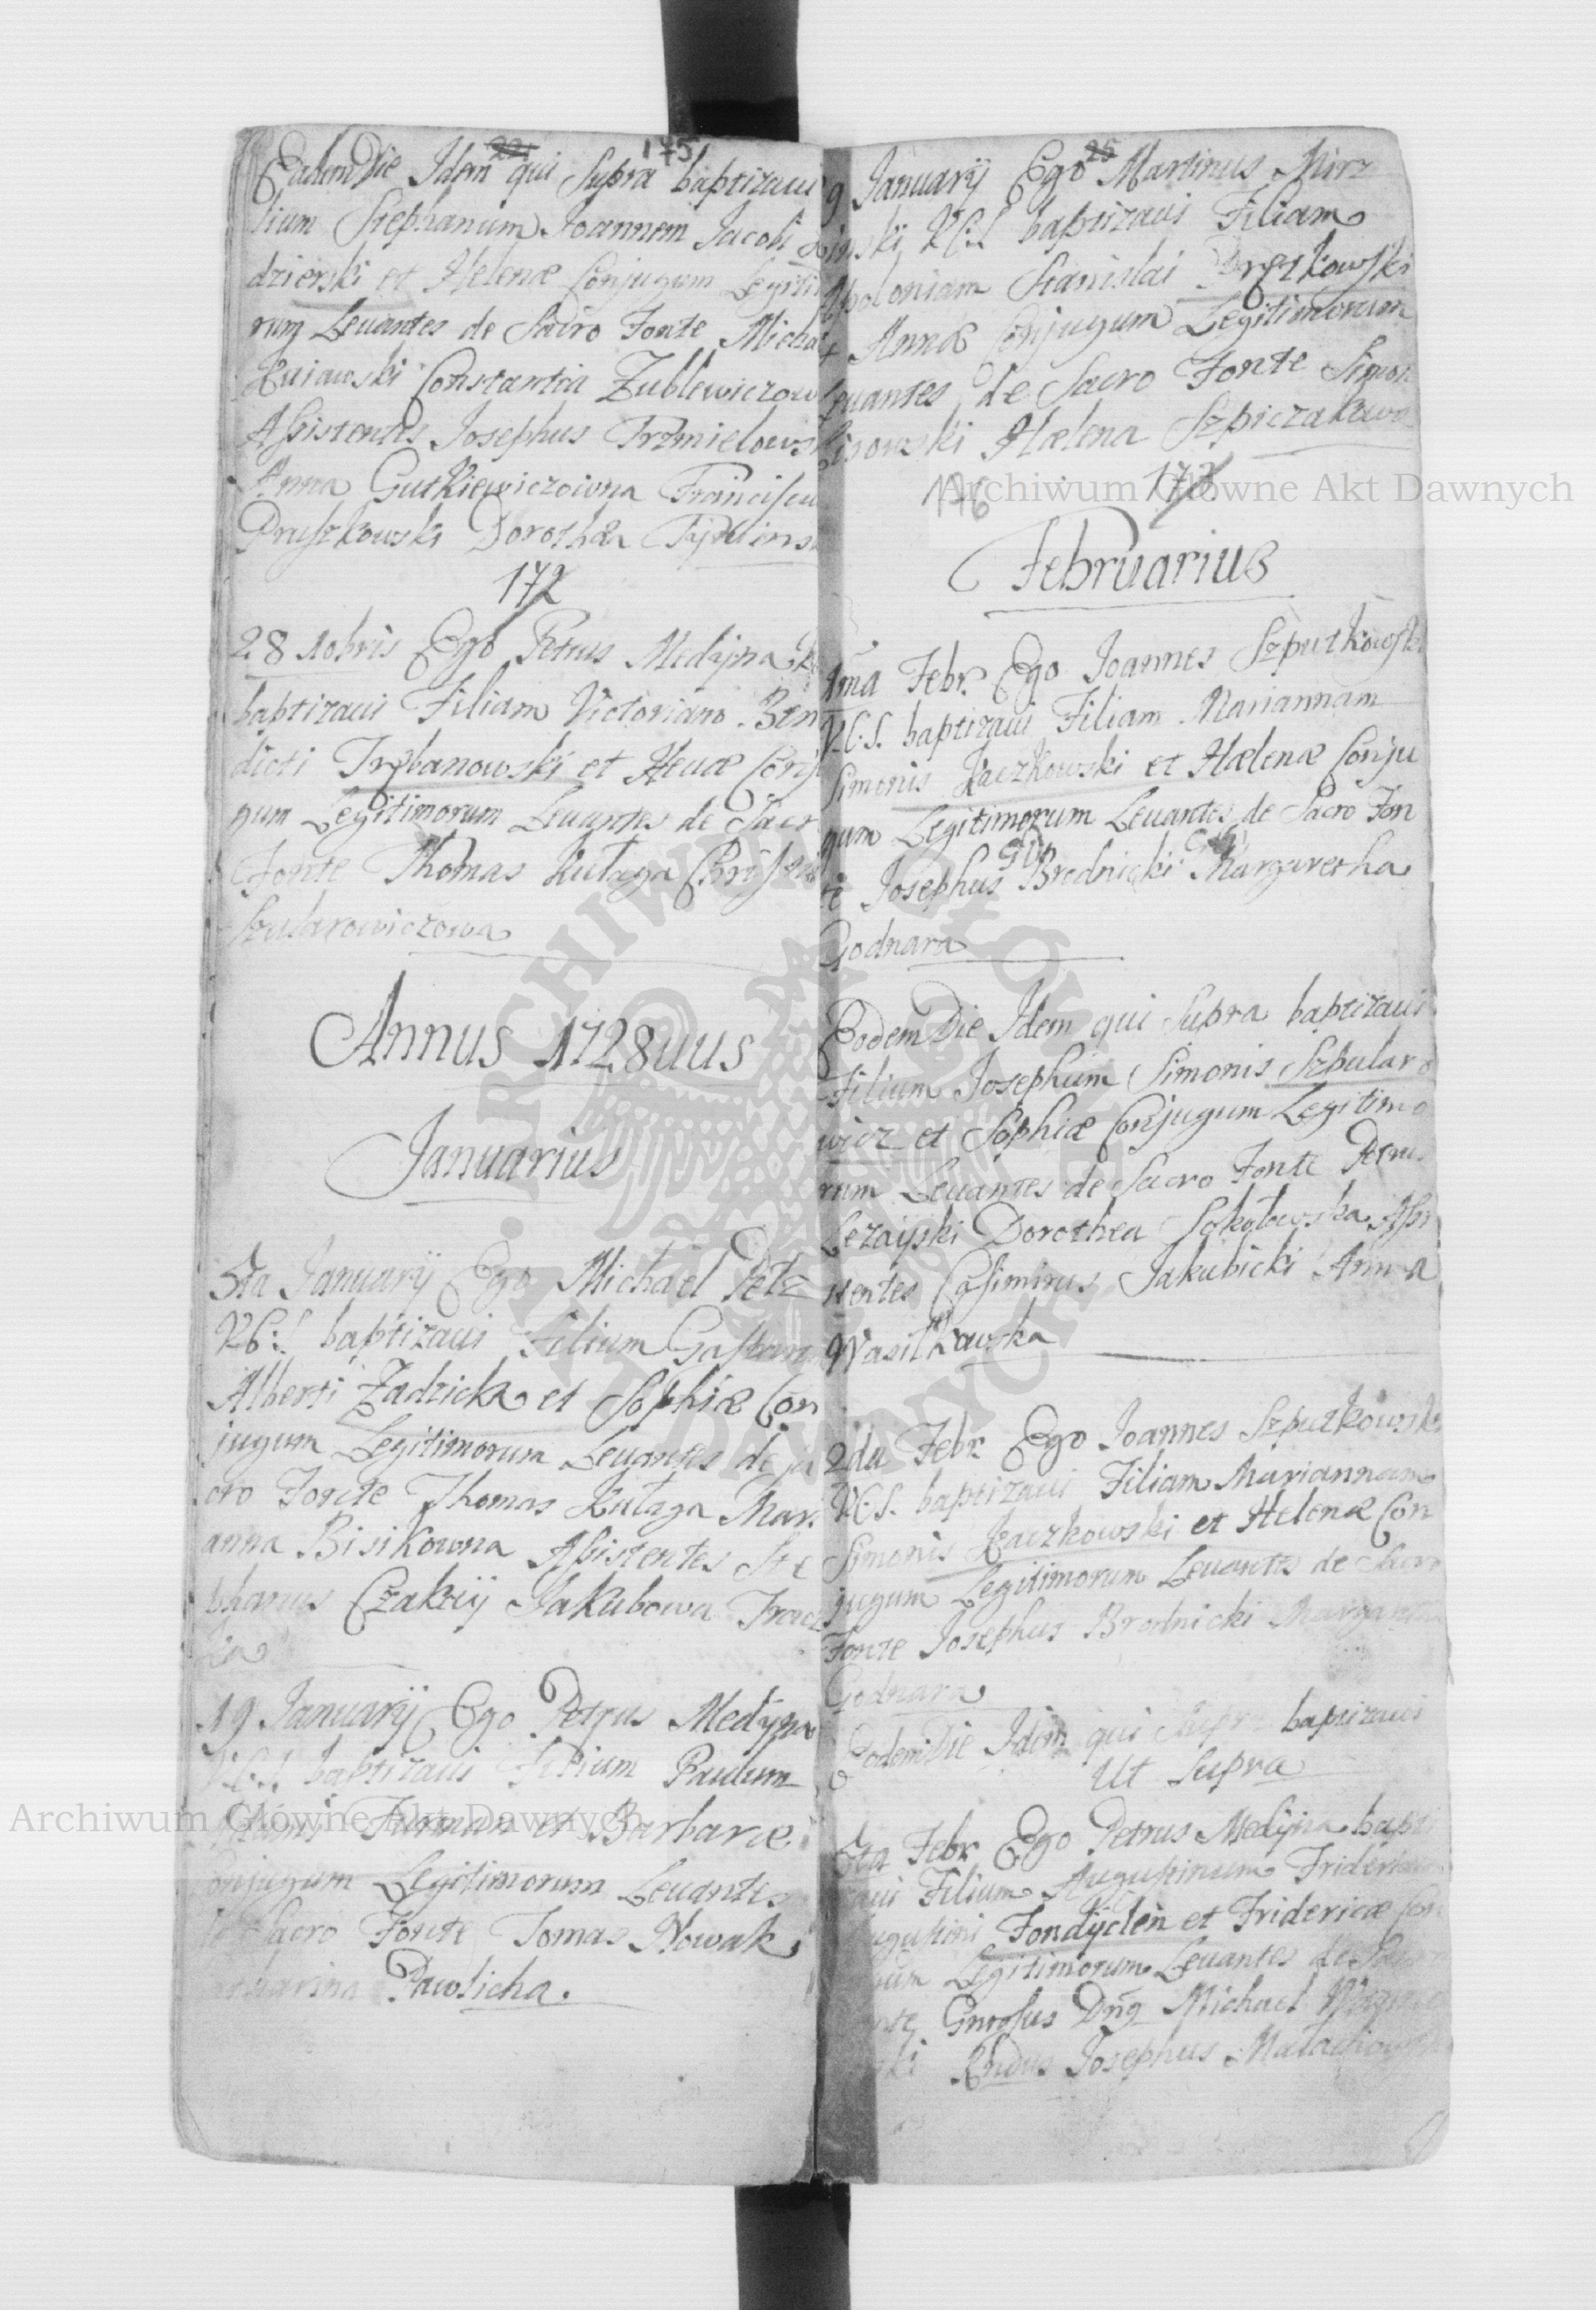 175
Eadem Die Idem qui Supra baptizaui
lium Stephanum Joannem Jacobi
dzierski et Helenæ Conjugum Legiti
rum Leuantes de Sacro Fonte Micha
Kuiawski Constantia Zublewiczow
Assistentes Josephus Trzmielows
Anna Gutkiewiczowna Franciscu
Pruszkowski Dorothea
172
28 Nobris Ego Petrus Medijna
baptizaui Filiam Victoriam Bene
dicti Trębanowski et Heuæ Conju
gum Legitimorum Leuantes de Sacr
Fonte Thomas Kułaga Christi
Szularowiczowa
Annus 1728uus
Januarius
5ta Januarij Ego Michael Pete
V.C.S. baptizaui Filium Gaspar
Alberti Zadzick et Sophiæ Con
jugum Legitimorum Leuantes de Sa
cro Fonte Thomas Kułaga Mari
anna Bisikowna Assistentes Ste
phanus Czakij Jakubowa Tracz
ka
19 Januarij Ego Petrus Medijna
V.C.S. baptizaui Filium Paulum
Furman et Barbaræ
Conjugum Legitimorum Leuantes
de Sacro Fonte Tomas Nowak
Catharina Pawlicha.
25
9 Januarij Ego Martinus Mirz
inski V.C.S. baptizaui Filiam
Apoloniam Stanislai
et Annæ Conjugum Legitimorum
Leuantes de Sacro Fonte Simon
Lisowski Hælena Szpiczakowa
176 173
Februarius
1ma Febr. Ego Joannes Szputkowski
V.C.S. baptizaui Filiam Mariannam
Simonis Kaczkowski et Hælenæ Conju
gum Legitimorum Leuantes de Sacro Fon
te Josephus Brodnicki Margaretha
Godnara
Eodem Die Idem qui Supra baptizaui
Filium Josephum Simonis Szpularo
wicz et Sophiæ Conjugum Legitimo
rum Leuantes de Sacro Fonte Petrus
Lezayski Dorothea Sokołowska Assi
stentes Casimirus Jakubicki Anna
Wasilkowska
2da Febr. Ego Joannes Szputkowski
V.C.S. baptizaui Filiam Mariannam
Simonis Kaczkowski et Helenæ Con
jugum Legitimorum Leuantes de Sacro
Fonte Josephus Brodnicki Margaretha
Godnara
Eodem Die Idem qui Supra baptizaui
Ut Supra
5ta Febr Ego Petrus Medijna bapti
zaui Filium Augustinum Fridericum
Augustini Fondijclein et Fridericæ Con
gum Legitimorum Leuantes de Sacro
Fonte Gnrosus Dnq Michael
ski Rndus Josephus Małachowski
Archiwum Główne Akt Dawnych
Archiwum Główne Akt Dawnych
ARCHIWUM GŁÓWNE AKT DAWNYCH